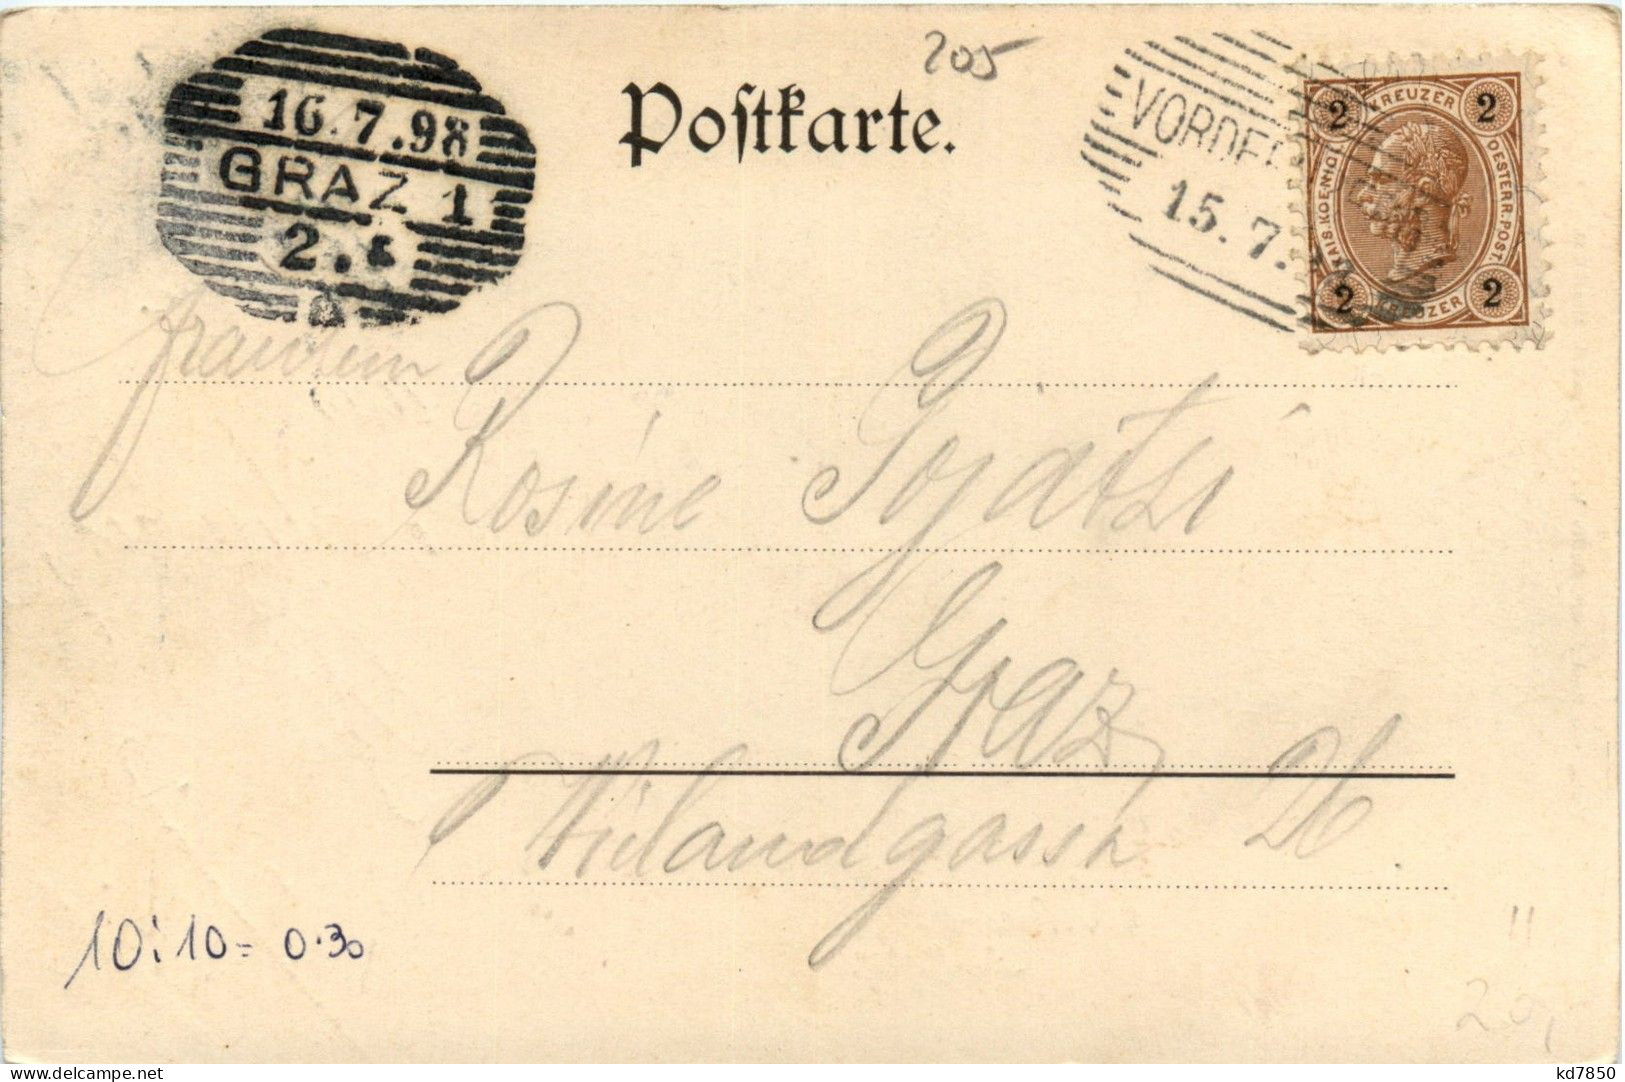 205
Postkarte.
16.7.98
GRAZ 1
2.
VORDE
15.7.
2 KREUZER 2
KAIS. KOENIGL. OESTERR. POST
2 KREUZER 2
Fräulein
Rosine
Graz
Wielandgasse
10:10= 0.30
11
20,
delcampe.net
kd7850